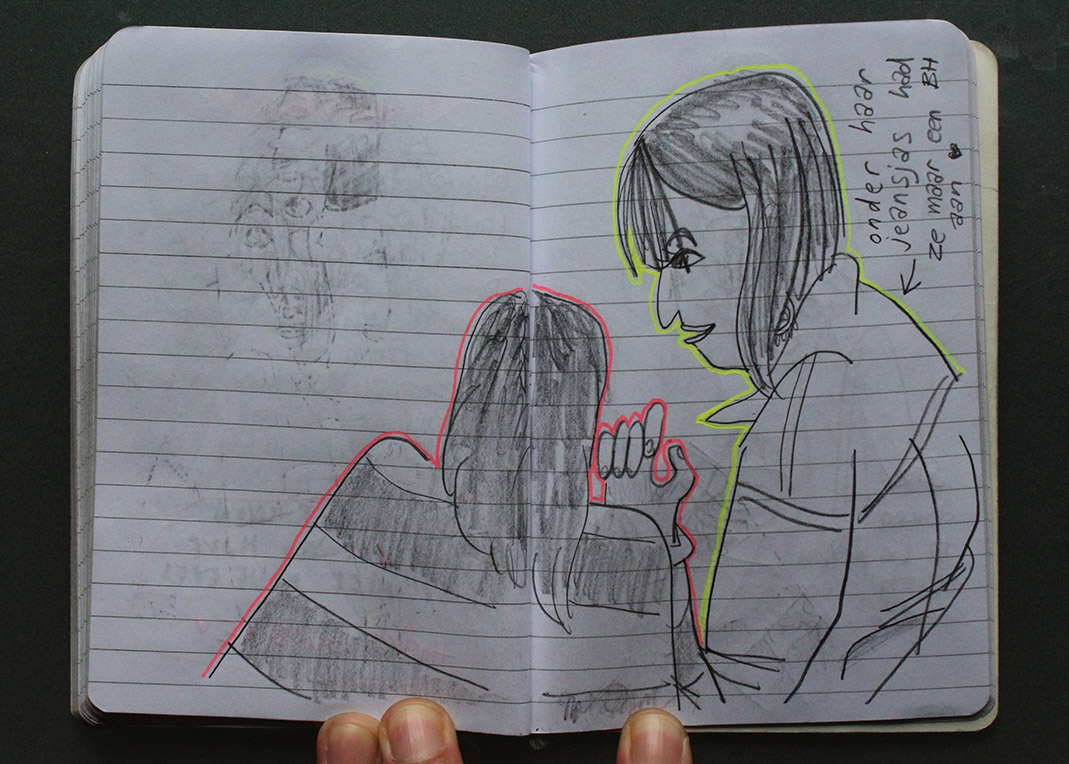 onder haar
jeansjas had
ze maar een BH
aan.